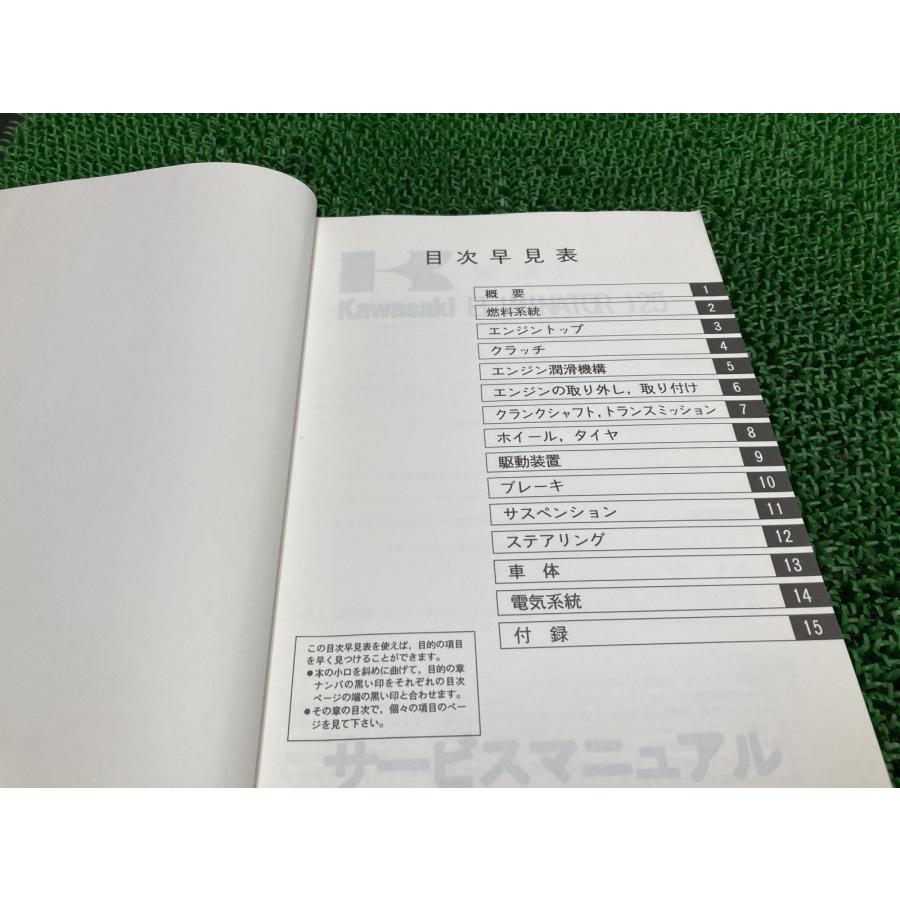 目次早見表
Kawasaki ELIMINATOR 125
概 要 1
燃料系統 2
エンジントップ 3
クラッチ 4
エンジン潤滑機構 5
エンジンの取り外し，取り付け 6
クランクシャフト，トランスミッション 7
ホイール，タイヤ 8
駆動装置 9
ブレーキ 10
サスペンション 11
ステアリング 12
車 体 13
電気系統 14
付 録 15
この目次早見表を使えば，目的の項目
を早く見つけることができます。
●本の小口を斜めに曲げて，目的の章
ナンバの黒い印をそれぞれの目次
ページの端の黒い印と合わせます。
●その章の目次で，個々の項目のペー
ジを見て下さい。
サービスマニュアル